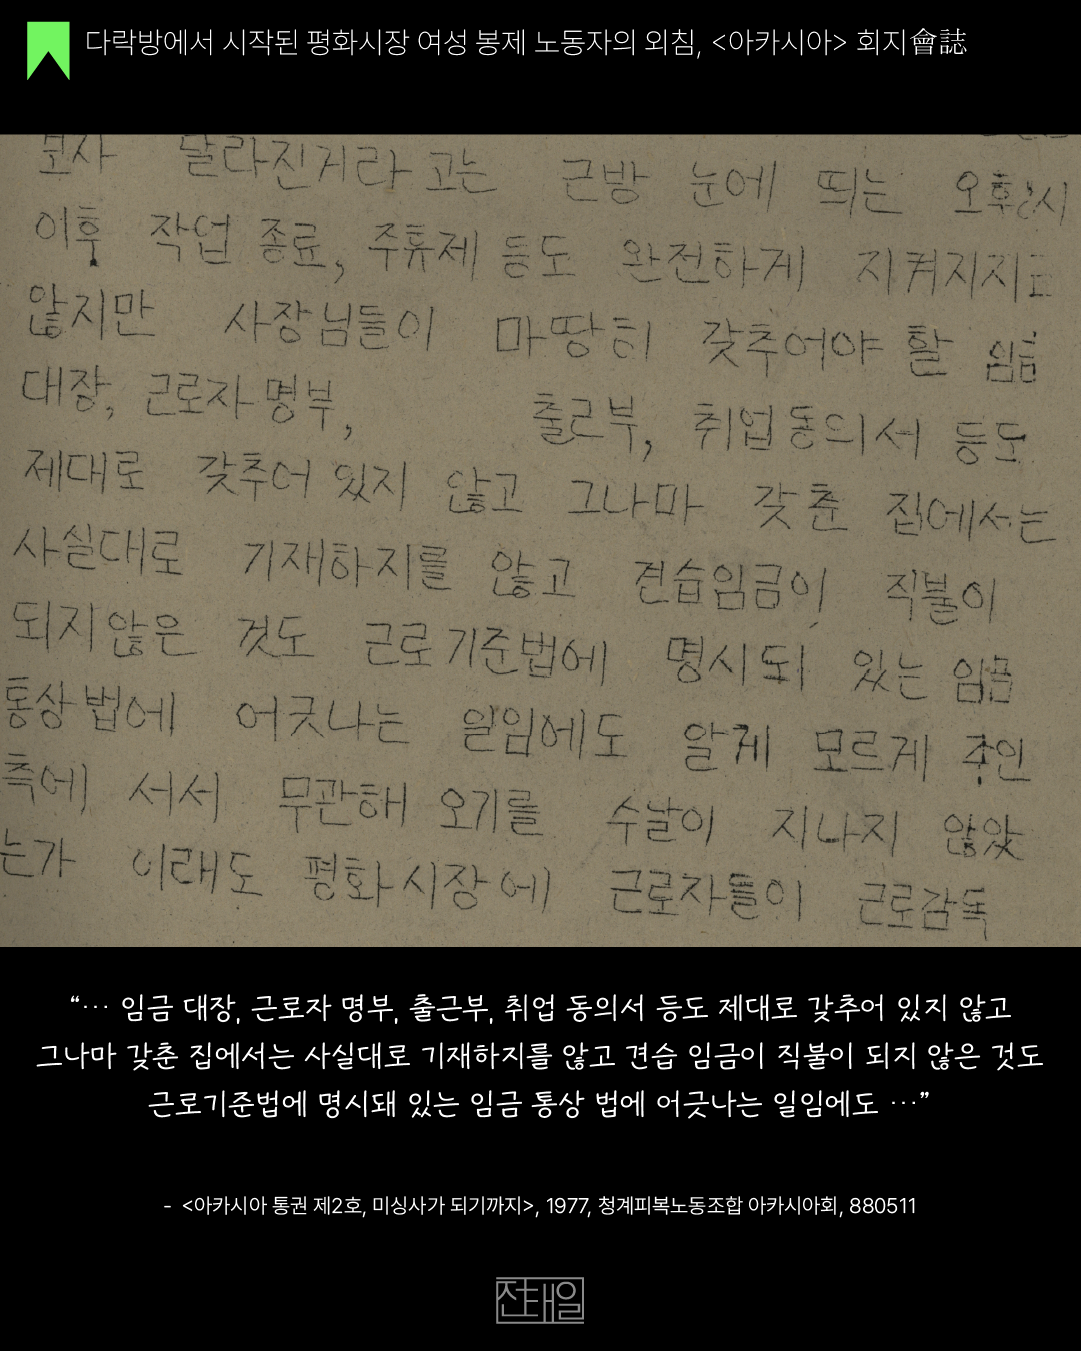 다락방에서 시작된 평화시장 여성 봉제 노동자의 외침, <아카시아> 회지會誌
보사 달라진거라 고는 근방 눈에 띄는 오후8시
이후 작업 종료, 주휴제 등도 완전하게 지켜지지는
않지만 사장님들이 마땅히 갖추어야 할 임금
대장, 근로자 명부, 출근부, 취업동의서 등도
제대로 갖추어 있지 않고 그나마 갖춘 집에서는
사실대로 기재하지를 않고 견습임금이 직불이
되지않은 것도 근로기준법에 명시되 있는 임금
통상법에 어긋나는 일임에도 알게 모르게 주인
측에 서서 무관해 오기를 수날이 지나지 않았
는가 이래도 평화시장에 근로자들이 근로감독
“··· 임금 대장, 근로자 명부, 출근부, 취업 동의서 등도 제대로 갖추어 있지 않고
그나마 갖춘 집에서는 사실대로 기재하지를 않고 견습 임금이 직불이 되지 않은 것도
근로기준법에 명시돼 있는 임금 통상 법에 어긋나는 일임에도 ···”
- <아카시아 통권 제2호, 미싱사가 되기까지>, 1977, 청계피복노동조합 아카시아회, 880511
전태일